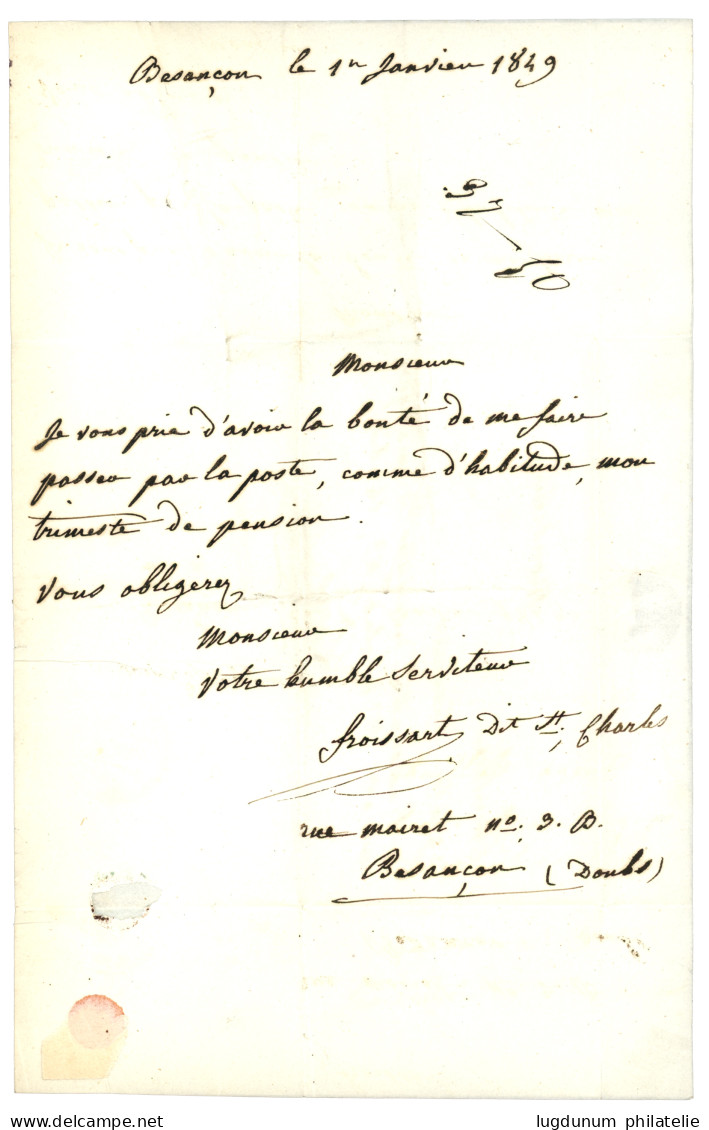 Besançon le 1er Janvier 1849
37-50
Monsieur
Je vous prie d'avoir la bonté de me faire
passer par la poste, comme d'habitude, mon
trimestre de pension.
Vous obligerez
Monsieur
Votre humble Serviteur
froissart Dit St. Charles
rue mairet no. 3. B.
Besançon (Doubs)
lugdunum philatelie